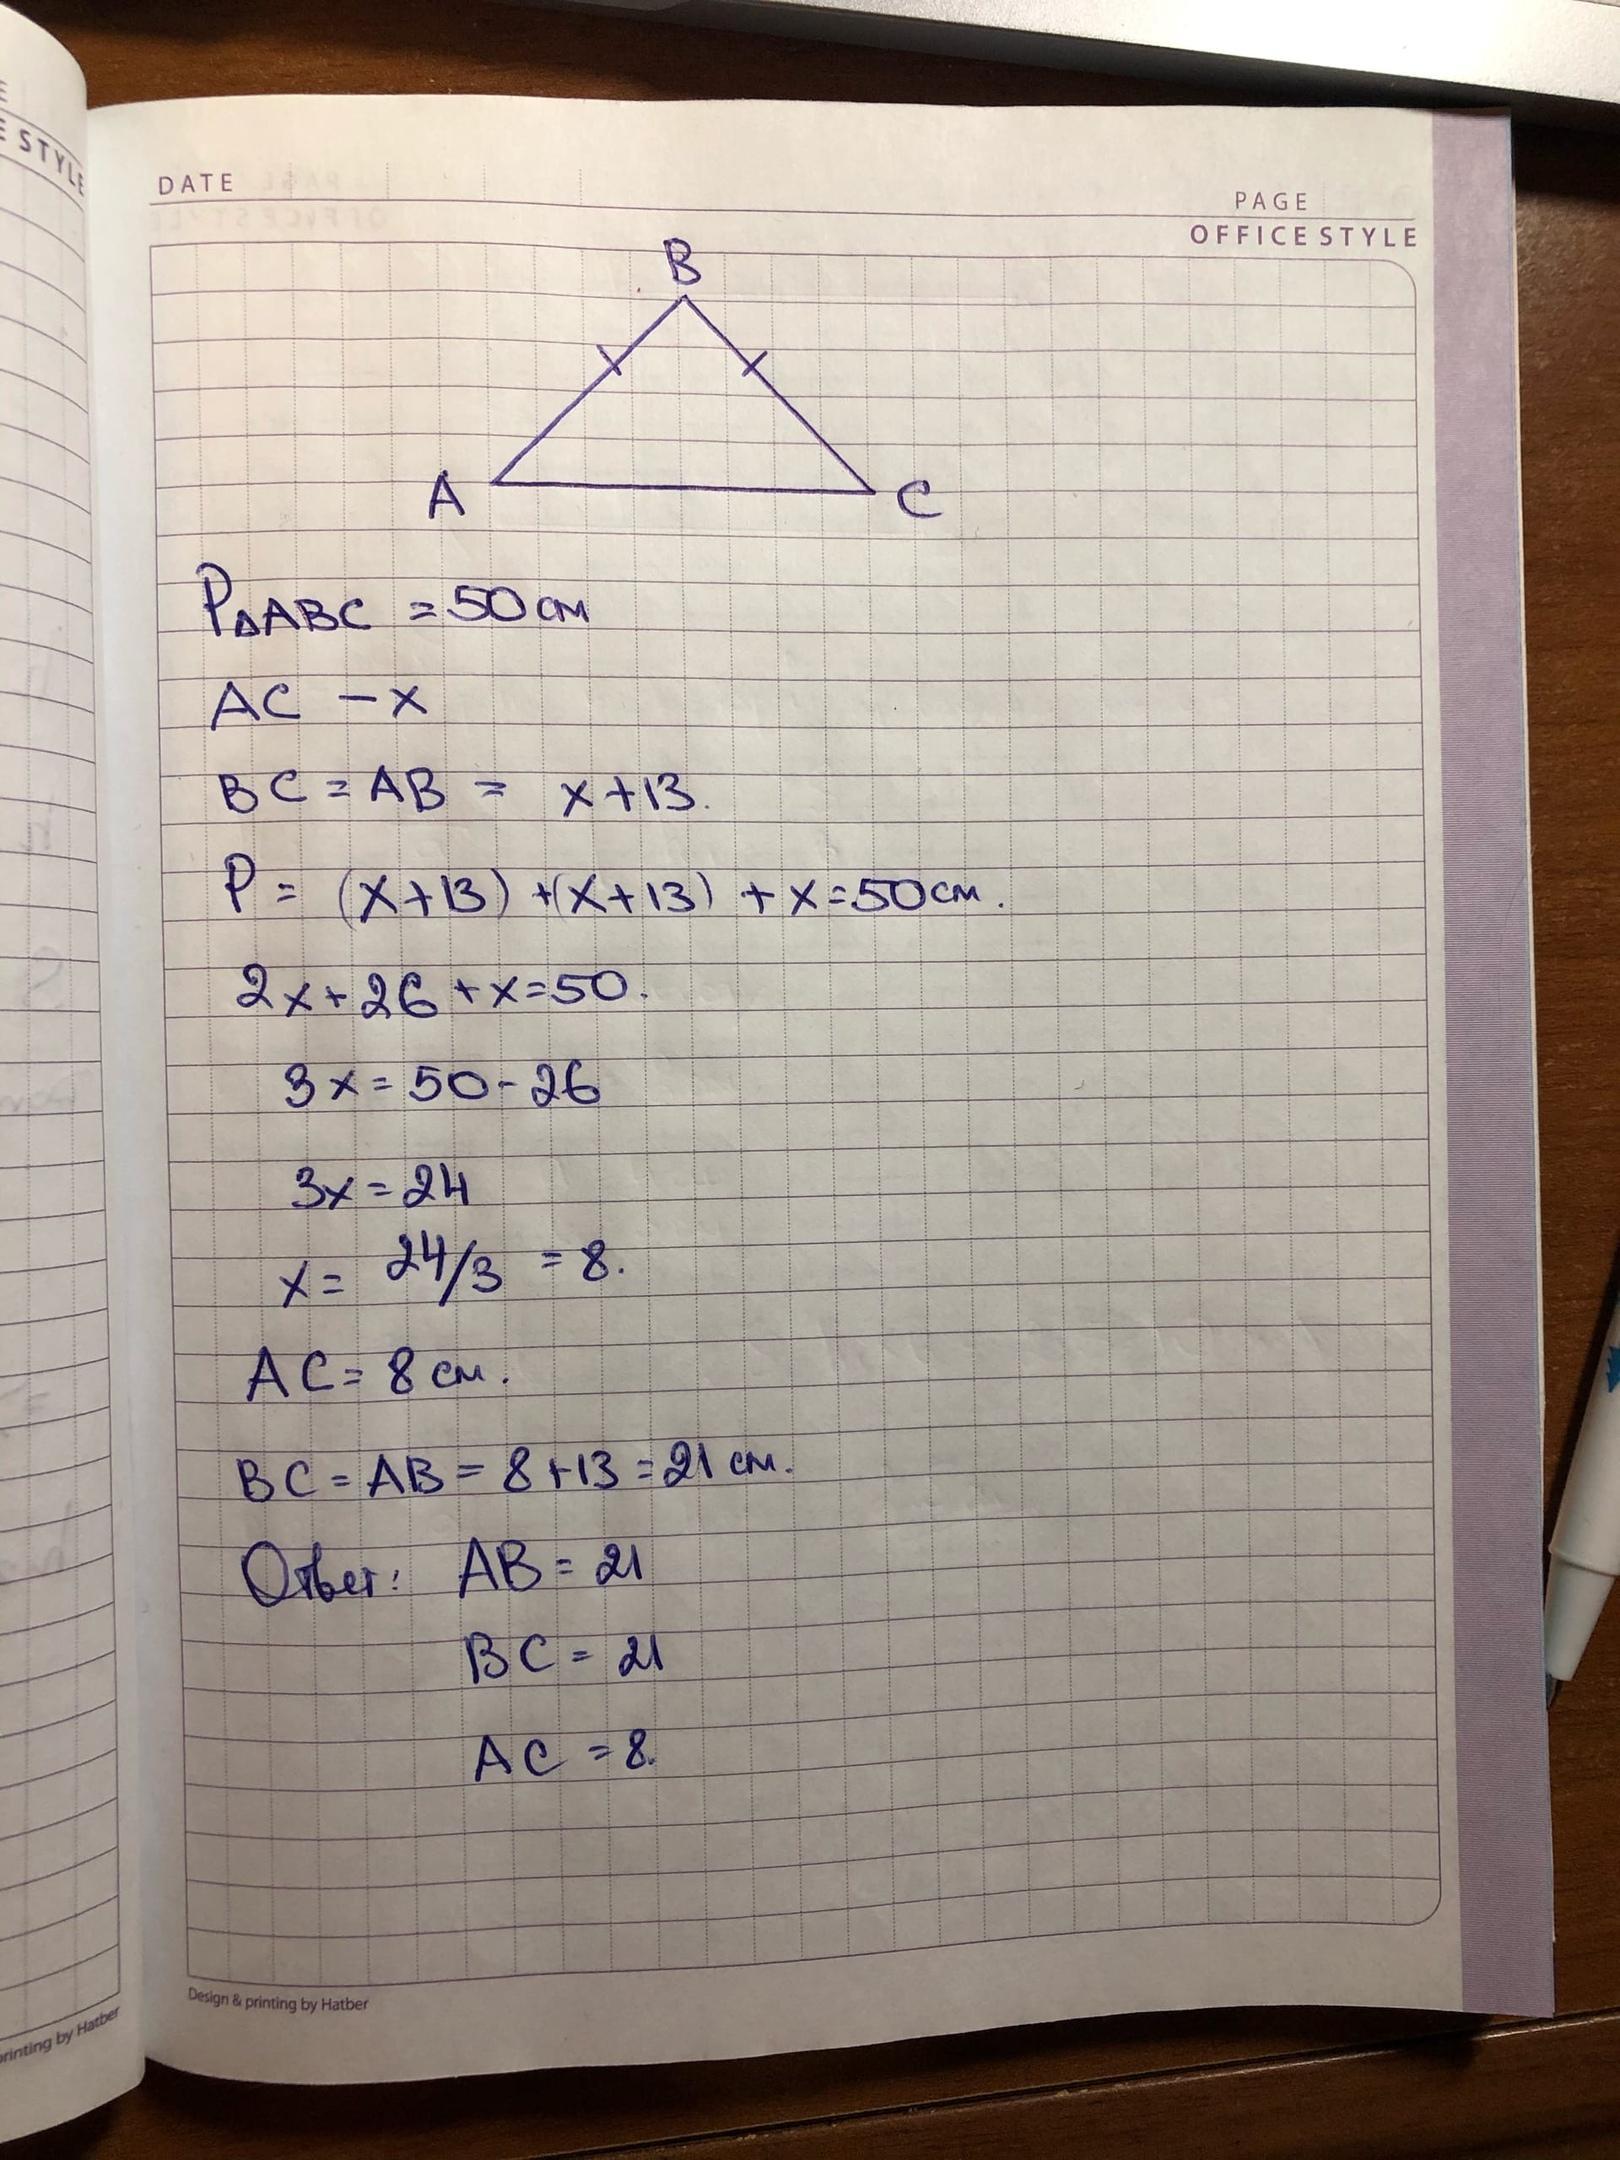 E
E STYLE
DATE
PAGE
OFFICE STYLE
B
A
C
P∆ABC = 50 см
AC – x
BC = AB = x+13.
P = (x+13) + (x+13) + x = 50 см.
2x + 26 + x = 50.
3x = 50 - 26
3x = 24
x = 24/3 = 8.
AC = 8 см.
BC = AB = 8+13 = 21 см.
Ответ: AB = 21
BC = 21
AC = 8.
Design & printing by Hatber
printing by Hatber